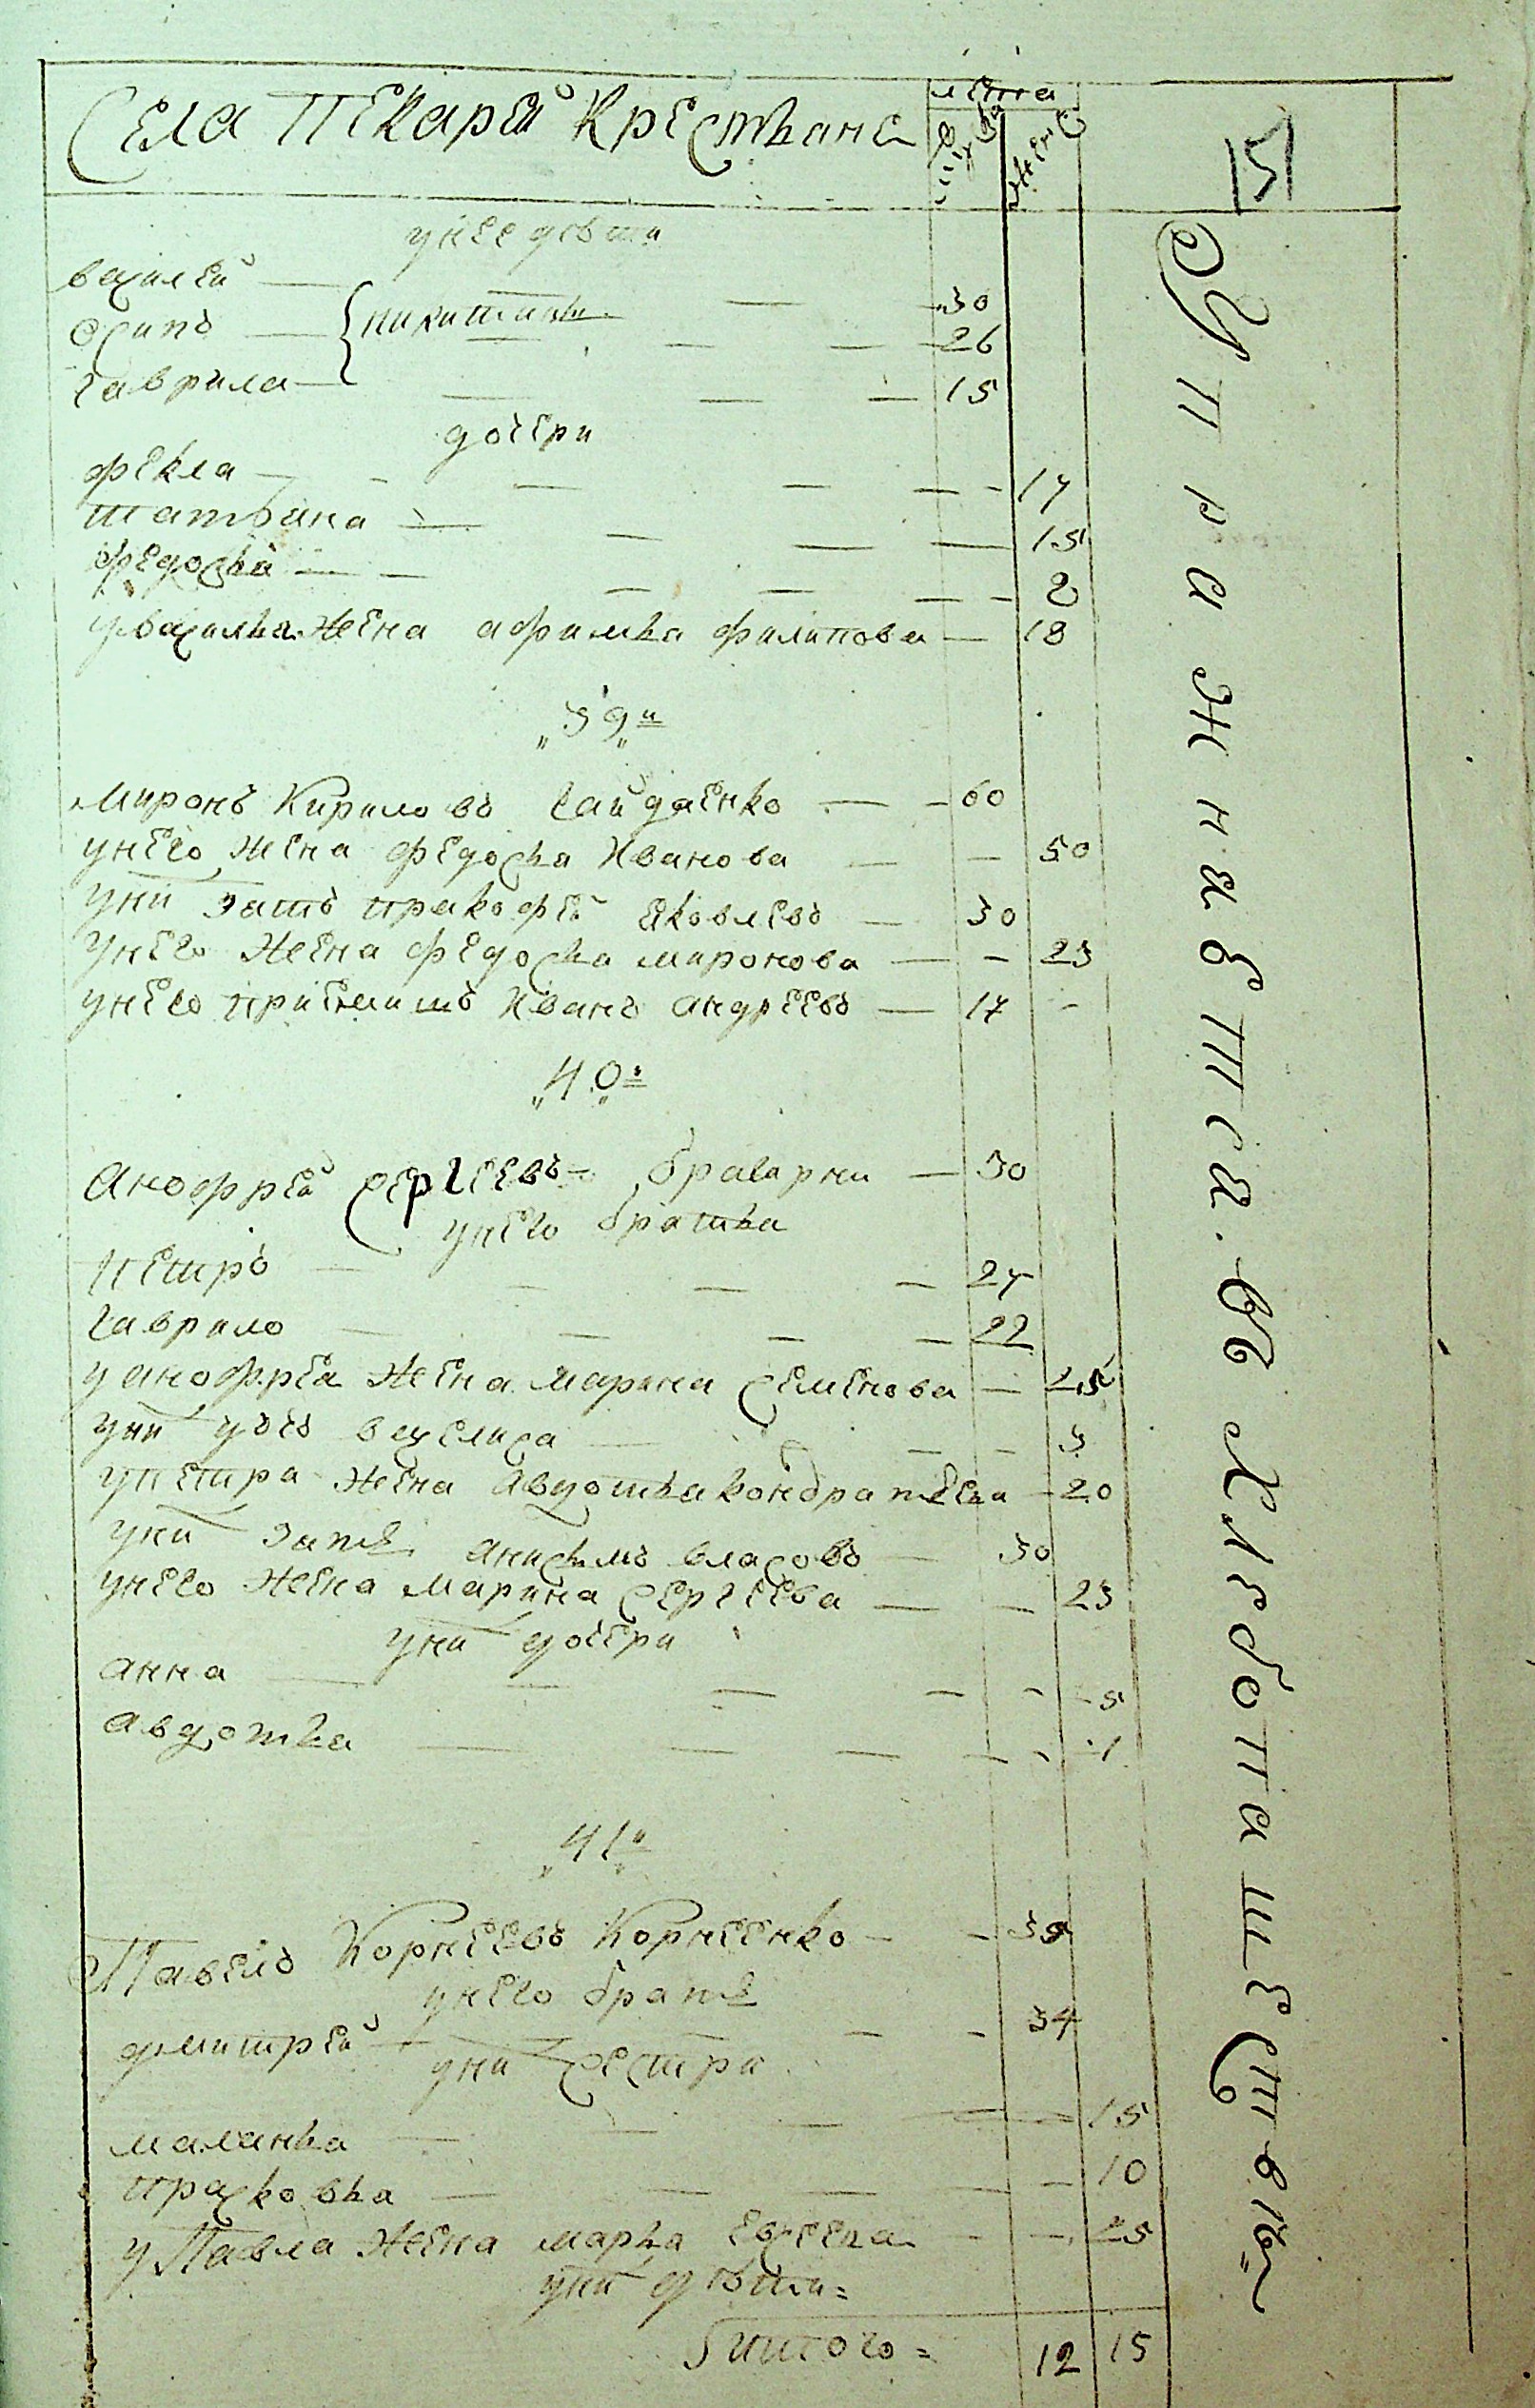 Села Пекарей Крестьяне
лета
муж
женс
15
унее дѣти
василей
осипъ никитины 30
26
гаврила 15
дочери
фекла 17
татьяна 15
федосья 2
у василья жена афимья филипова 18
39й
миронъ Кириловъ гайдаенко 60
унего жена федосья Иванова 50
уних зять пракофей яковлевъ 30
унего жена федосья миронова 23
унего приемишъ Иванъ андреевъ 17
40й
анофрей сергеевъ браварни 30
унего братья
петръ 27
гаврило 22
у анофрея жена марина семенова 25
уних дочь васелиса 3
у петра жена авдотья кондратьева 20
уних зять анисимъ власовъ 30
унего жена марина сергеева 23
уних дочери
анна 5
авдотья 1
41й
Павелъ Корнеевъ Корнеенко 39
унего братъ
дмитрей 34
уних сестри
маланья 15
прасковья 10
у Павла жена марья евсеева 25
уних дѣти
итого 12 15
Упражнаетса въ хлебопашествѣ